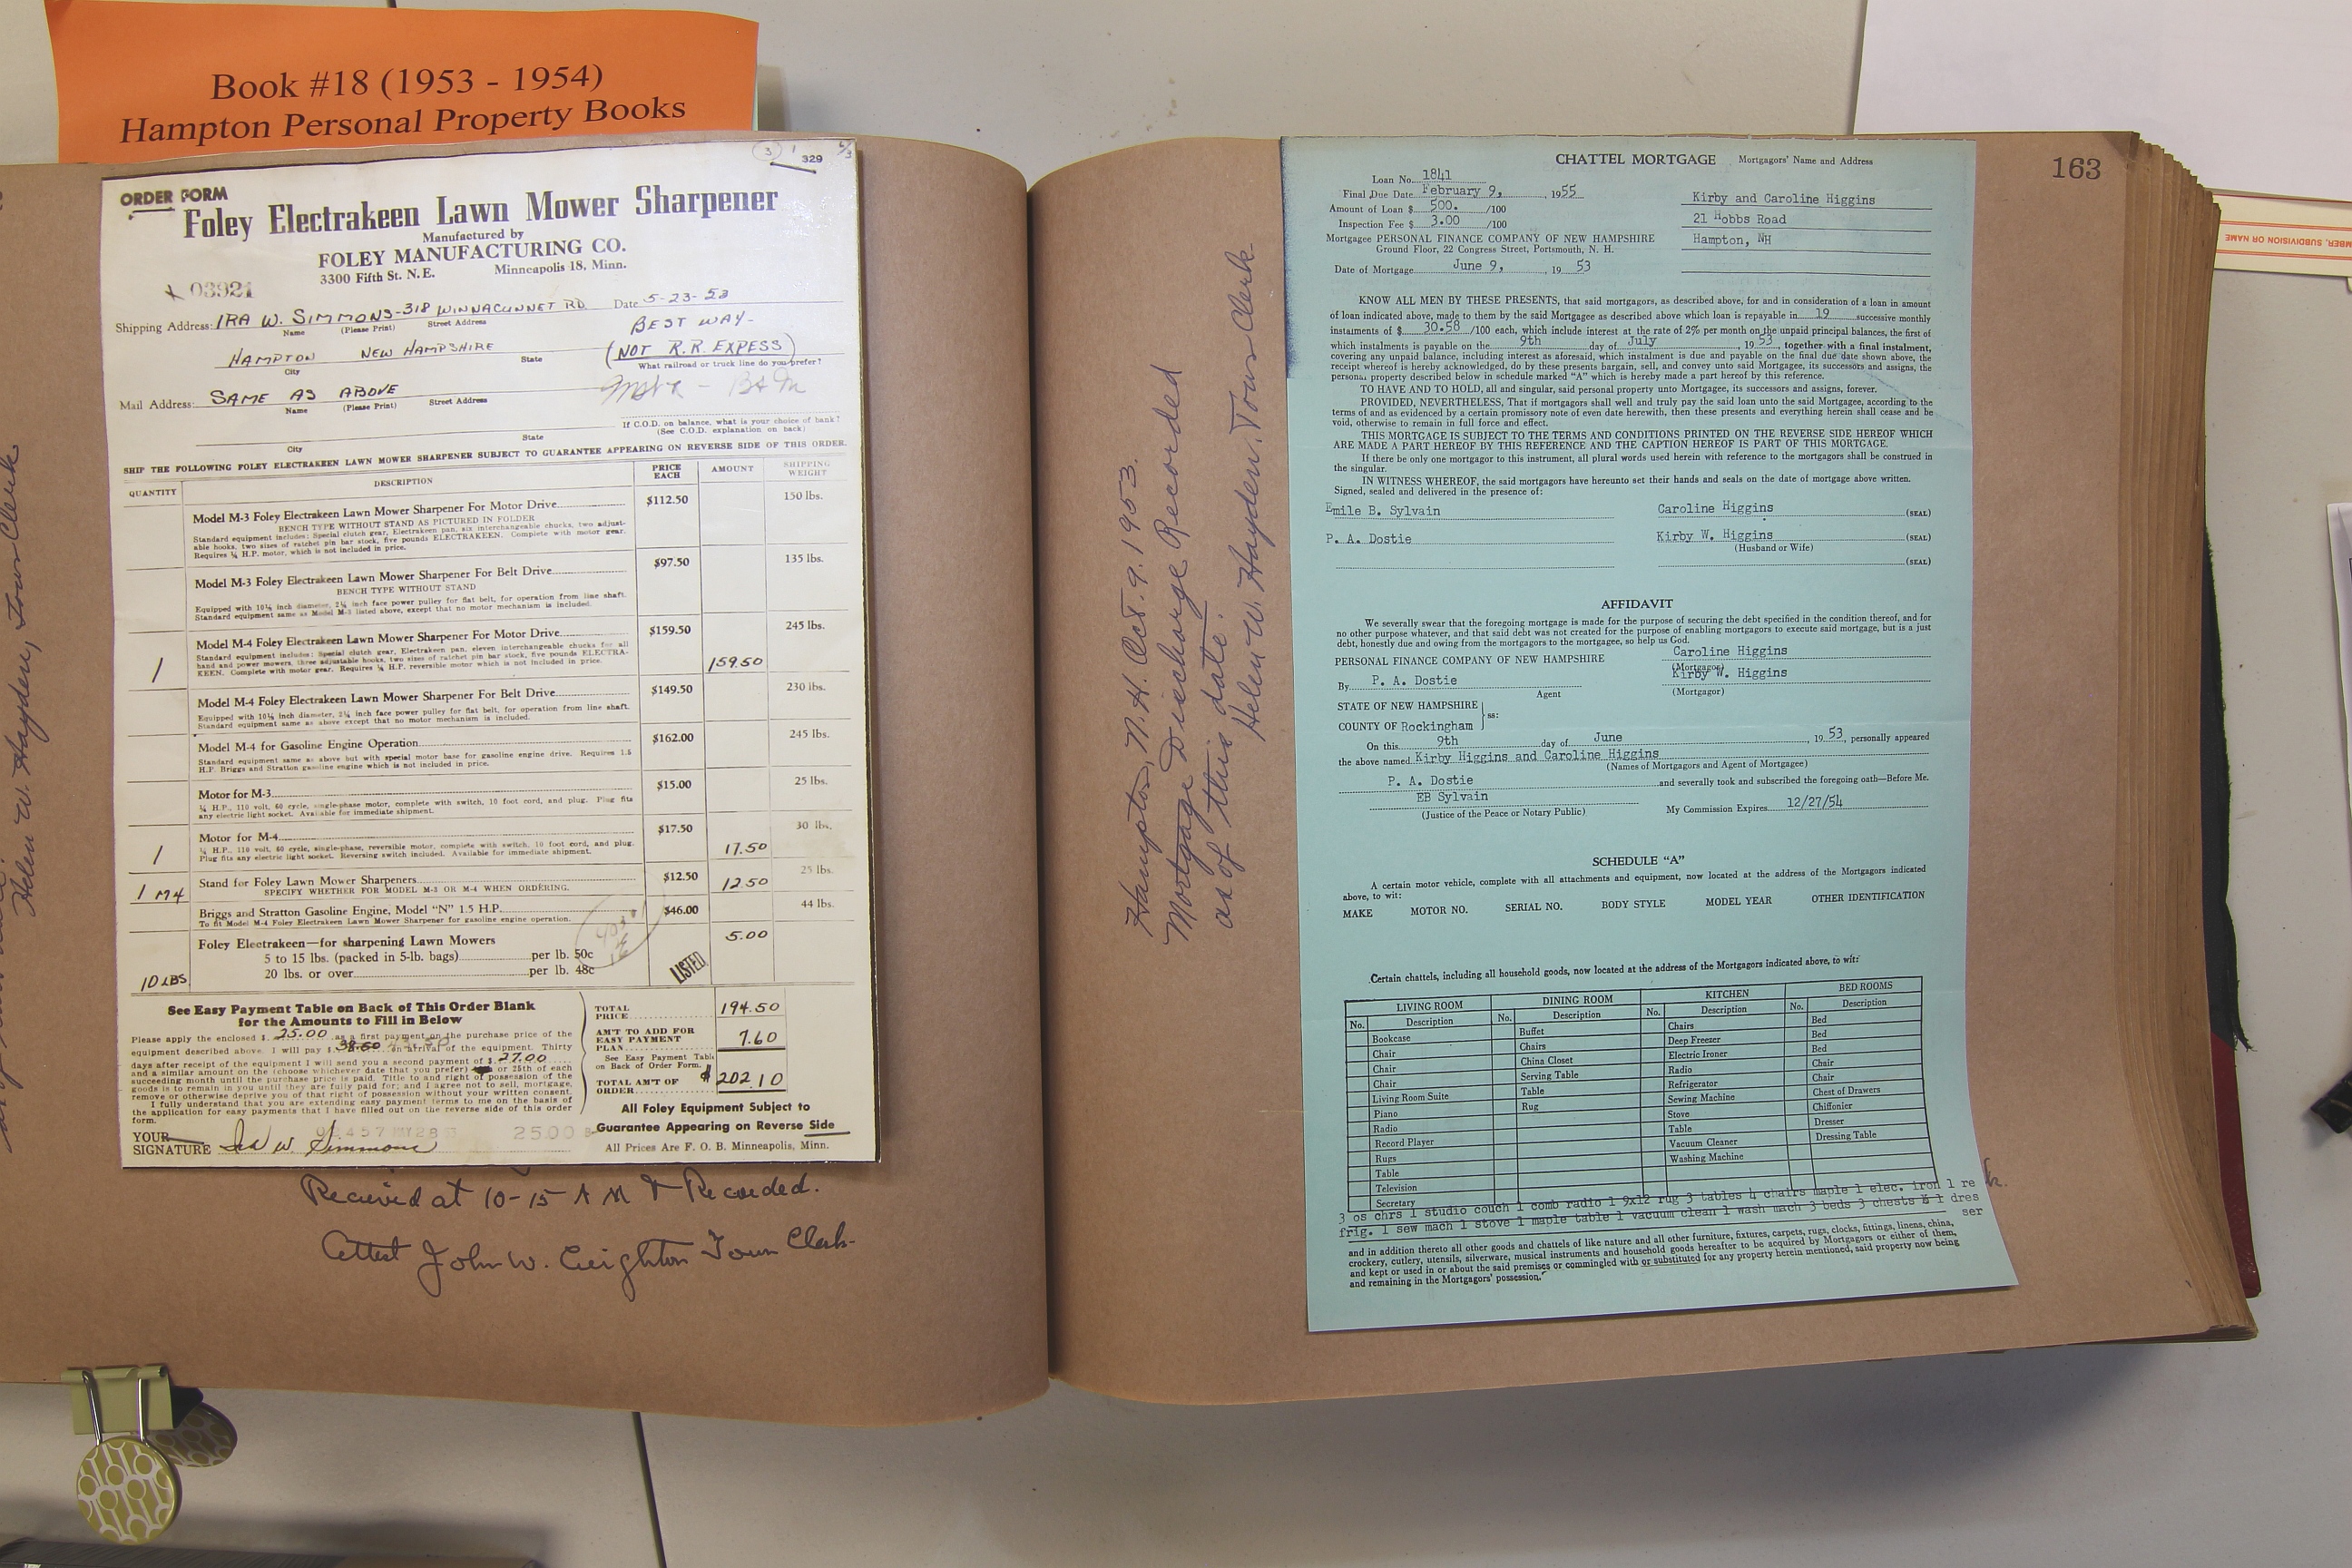 Book #18 (1953 - 1954)
Hampton Personal Property Books
329
ORDER FORM
Foley Electrakeen Lawn Mower Sharpener
Manufactured by
FOLEY MANUFACTURING CO.
3300 Fifth St. N.E. Minneapolis 18, Minn.
03921
Shipping Address: IRA W. SIMMONS-318 WINNACUNNET RD. Date 5-23-53
Name (Please Print) Street Address
BEST WAY-
HAMPTON NEW HAMPSHIRE (NOT R.R. EXPESS)
City State What railroad or truck line do you prefer?
Mail Address: SAME AS ABOVE
Name (Please Print) Street Address
If C.O.D. on balance, what is your choice of bank?
(See C.O.D. explanation on back)
City State
SHIP THE FOLLOWING FOLEY ELECTRAKEEN LAWN MOWER SHARPENER SUBJECT TO GUARANTEE APPEARING ON REVERSE SIDE OF THIS ORDER.
QUANTITY DESCRIPTION PRICE EACH AMOUNT SHIPPING WEIGHT
Model M-3 Foley Electrakeen Lawn Mower Sharpener For Motor Drive $112.50 150 lbs.
BENCH TYPE WITHOUT STAND AS PICTURED IN FOLDER
Standard equipment includes: Special clutch gear, Electrakeen pan, six interchangeable chucks, two adjust-
able hooks, two sizes of ratchet pin bar stock, five pounds ELECTRAKEEN. Complete with motor gear.
Requires ¼ H.P. motor, which is not included in price.
Model M-3 Foley Electrakeen Lawn Mower Sharpener For Belt Drive $97.50 135 lbs.
BENCH TYPE WITHOUT STAND
Equipped with 10⅛ inch diameter, 2¼ inch face power pulley for flat belt, for operation from line shaft.
Standard equipment same as Model M-3 listed above, except that no motor mechanism is included.
Model M-4 Foley Electrakeen Lawn Mower Sharpener For Motor Drive $159.50 245 lbs.
Standard equipment includes: Special clutch gear, Electrakeen pan, eleven interchangeable chucks for all
hand and power mowers, three adjustable hooks, two sizes of ratchet pin bar stock, five pounds ELECTRA-
KEEN. Complete with motor gear. Requires ¼ H.P. reversible motor which is not included in price.
1 159.50
Model M-4 Foley Electrakeen Lawn Mower Sharpener For Belt Drive $149.50 230 lbs.
Equipped with 10⅛ inch diameter, 2¼ inch face power pulley for flat belt, for operation from line shaft.
Standard equipment same as above except that no motor mechanism is included.
Model M-4 for Gasoline Engine Operation $162.00 245 lbs.
Standard equipment same as above but with special motor base for gasoline engine drive. Requires 1.5
H.P. Briggs and Stratton gasoline engine which is not included in price.
Motor for M-3 $15.00 25 lbs.
¼ H.P., 110 volt, 60 cycle, single-phase motor, complete with switch, 10 foot cord, and plug. Plug fits
any electric light socket. Available for immediate shipment.
Motor for M-4 $17.50 30 lbs.
1 17.50
¼ H.P., 110 volt, 60 cycle, single-phase, reversible motor, complete with switch, 10 foot cord, and plug.
Plug fits any electric light socket. Reversing switch included. Available for immediate shipment.
1 M4 Stand for Foley Lawn Mower Sharpeners $12.50 12.50 25 lbs.
SPECIFY WHETHER FOR MODEL M-3 OR M-4 WHEN ORDERING.
Briggs and Stratton Gasoline Engine, Model "N" 1.5 H.P. $46.00 44 lbs.
To fit Model M-4 Foley Electrakeen Lawn Mower Sharpener for gasoline engine operation.
Foley Electrakeen—for sharpening Lawn Mowers 5.00
5 to 15 lbs. (packed in 5-lb. bags) per lb. 50c
10 LBS. 20 lbs. or over per lb. 48c LISTED
See Easy Payment Table on Back of This Order Blank
for the Amounts to Fill in Below
Please apply the enclosed $ 25.00 as a first payment on the purchase price of the
equipment described above. I will pay $ 38.50 on arrival of the equipment. Thirty
days after receipt of the equipment I will send you a second payment of $ 27.00
and a similar amount on the (choose whichever date that you prefer) or 25th of each
succeeding month until the purchase price is paid. Title to and right of possession of the
goods is to remain in you until they are fully paid for; and I agree not to sell, mortgage,
remove or otherwise deprive you of that right of possession without your written consent.
I fully understand that you are extending easy payment terms to me on the basis of
the application for easy payments that I have filled out on the reverse side of this order
form.
TOTAL PRICE 194.50
AM'T TO ADD FOR EASY PAYMENT PLAN 7.60
See Easy Payment Table
on Back of Order Form.
TOTAL AM'T OF ORDER $ 202.10
All Foley Equipment Subject to
Guarantee Appearing on Reverse Side
All Prices Are F. O. B. Minneapolis, Minn.
2500
YOUR SIGNATURE Ira W. Simmons
Recieved at 10-15 A M & Recorded.
Attest John W. Creighton Town Clerk-
Helen W. Hayden, Town Clerk
Hampton, N.H. Oct. 9. 1953.
Mortgage Discharge Recorded
as of this date.
Helen W. Hayden. Town Clerk
163
CHATTEL MORTGAGE Mortgagors' Name and Address
Loan No. 1841
Final Due Date February 9, 1955
Amount of Loan $ 500. /100
Inspection Fee $ 3.00 /100
Kirby and Caroline Higgins
21 Hobbs Road
Hampton, NH
Mortgagee PERSONAL FINANCE COMPANY OF NEW HAMPSHIRE
Ground Floor, 22 Congress Street, Portsmouth, N. H.
Date of Mortgage June 9, 1953
KNOW ALL MEN BY THESE PRESENTS, that said mortgagors, as described above, for and in consideration of a loan in amount
of loan indicated above, made to them by the said Mortgagee as described above which loan is repayable in 19 successive monthly
instalments of $ 30.58 /100 each, which include interest at the rate of 2% per month on the unpaid principal balances, the first of
which instalments is payable on the 9th day of July, 1953, together with a final instalment,
covering any unpaid balance, including interest as aforesaid, which instalment is due and payable on the final due date shown above, the
receipt whereof is hereby acknowledged, do by these presents bargain, sell, and convey unto said Mortgagee, its successors and assigns, the
personal property described below in schedule marked "A" which is hereby made a part hereof by this reference.
TO HAVE AND TO HOLD, all and singular, said personal property unto Mortgagee, its successors and assigns, forever.
PROVIDED, NEVERTHELESS, That if mortgagors shall well and truly pay the said loan unto the said Mortgagee, according to the
terms of and as evidenced by a certain promissory note of even date herewith, then these presents and everything herein shall cease and be
void, otherwise to remain in full force and effect.
THIS MORTGAGE IS SUBJECT TO THE TERMS AND CONDITIONS PRINTED ON THE REVERSE SIDE HEREOF WHICH
ARE MADE A PART HEREOF BY THIS REFERENCE AND THE CAPTION HEREOF IS PART OF THIS MORTGAGE.
If there be only one mortgagor to this instrument, all plural words used herein with reference to the mortgagors shall be construed in
the singular.
IN WITNESS WHEREOF, the said mortgagors have hereunto set their hands and seals on the date of mortgage above written.
Signed, sealed and delivered in the presence of:
Emile B. Sylvain Caroline Higgins (SEAL)
P. A. Dostie Kirby W. Higgins (SEAL)
(Husband or Wife)
(SEAL)
AFFIDAVIT
We severally swear that the foregoing mortgage is made for the purpose of securing the debt specified in the condition thereof, and for
no other purpose whatever, and that said debt was not created for the purpose of enabling mortgagors to execute said mortgage, but is a just
debt, honestly due and owing from the mortgagors to the mortgagee, so help us God.
PERSONAL FINANCE COMPANY OF NEW HAMPSHIRE Caroline Higgins
(Mortgagor)
By P. A. Dostie Kirby W. Higgins
Agent (Mortgagor)
STATE OF NEW HAMPSHIRE
ss:
COUNTY OF Rockingham
On this 9th day of June, 1953, personally appeared
the above named Kirby Higgins and Caroline Higgins
(Names of Mortgagors and Agent of Mortgagee)
P. A. Dostie and severally took and subscribed the foregoing oath—Before Me.
EB Sylvain My Commission Expires 12/27/54
(Justice of the Peace or Notary Public)
SCHEDULE "A"
A certain motor vehicle, complete with all attachments and equipment, now located at the address of the Mortgagors indicated
above, to wit:
MAKE MOTOR NO. SERIAL NO. BODY STYLE MODEL YEAR OTHER IDENTIFICATION
Certain chattels, including all household goods, now located at the address of the Mortgagors indicated above, to wit:
LIVING ROOM DINING ROOM KITCHEN BED ROOMS
No. Description No. Description No. Description No. Description
Bookcase Buffet Chairs Bed
Chair Chairs Deep Freezer Bed
Chair China Closet Electric Ironer Bed
Chair Serving Table Radio Chair
Living Room Suite Table Refrigerator Chair
Piano Rug Sewing Machine Chest of Drawers
Radio Stove Chiffonier
Record Player Table Dresser
Rugs Vacuum Cleaner Dressing Table
Table Washing Machine
Television
Secretary
3 os chrs 1 studio couch 1 comb radio 1 9x12 rug 3 tables 4 chairs maple 1 elec. iron 1 re
frig. 1 sew mach 1 stove 1 maple table 1 vacuum clean 1 wash mach 3 beds 3 chests & 1 dres
ser
and in addition thereto all other goods and chattels of like nature and all other furniture, fixtures, carpets, rugs, clocks, fittings, linens, china,
crockery, cutlery, utensils, silverware, musical instruments and household goods hereafter to be acquired by Mortgagors or either of them,
and kept or used in or about the said premises or commingled with or substituted for any property herein mentioned, said property now being
and remaining in the Mortgagors' possession.
MBER, SUBDIVISION OR NAME